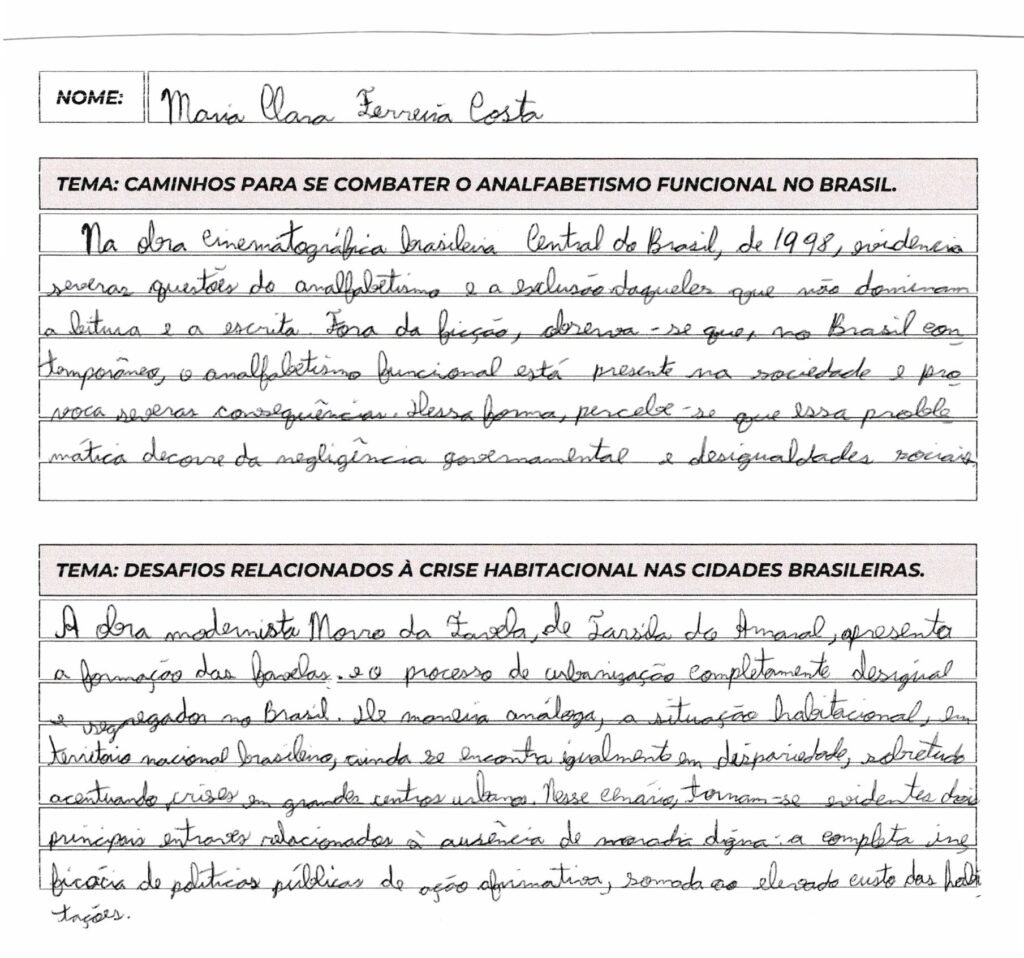 NOME: Maria Clara Ferreira Costa
TEMA: CAMINHOS PARA SE COMBATER O ANALFABETISMO FUNCIONAL NO BRASIL.
Na obra cinematográfica brasileira Central do Brasil, de 1998, evidencia
severas questões do analfabetismo e a exclusão daqueles que não dominam
a leitura e a escrita. Fora da ficção, observa-se que, no Brasil con
temporâneo, o analfabetismo funcional está presente na sociedade e pro
voca severas consequências. Dessa forma, percebe-se que essa proble
mática decorre da negligência governamental e desigualdades sociais
TEMA: DESAFIOS RELACIONADOS À CRISE HABITACIONAL NAS CIDADES BRASILEIRAS.
A obra modernista Morro da Favela, de Tarsila do Amaral, apresenta
a formação das favelas. e o processo de urbanização completamente desigual
e segregador no Brasil. De maneira análoga, a situação habitacional, em
território nacional brasileiro, ainda se encontra igualmente em despariedade, sobretudo
acentuando crises em grandes centros urbanos. Nesse cenário, tornam-se evidentes dois
principais entraves relacionados à ausência de moradia digna: a completa ine
ficácia de políticas públicas de ação afirmativa, somada ao elevado custo das habi
tações.